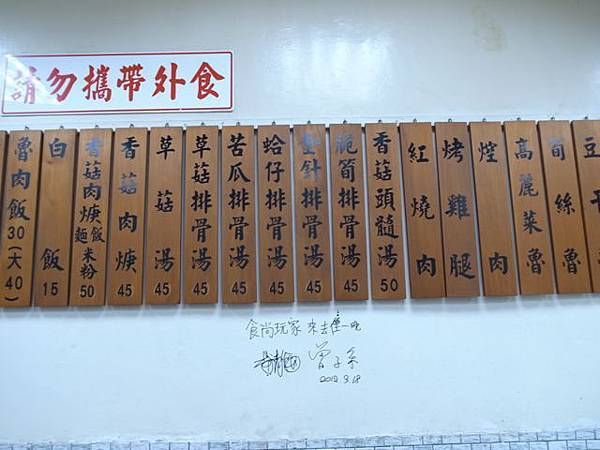 請勿攜帶外食
魯肉飯30(大40)
白飯15
香菇肉焿飯麵米粉50
香菇肉焿45
草菇湯45
草菇排骨湯45
苦瓜排骨湯45
蛤仔排骨湯45
排骨湯45
脆筍排骨湯45
香菇頭髓湯50
紅燒肉
烤雞腿
焢肉
高麗菜魯
筍絲魯
豆干
食尚玩家 來去住一晚
曾子余
2012 9.18